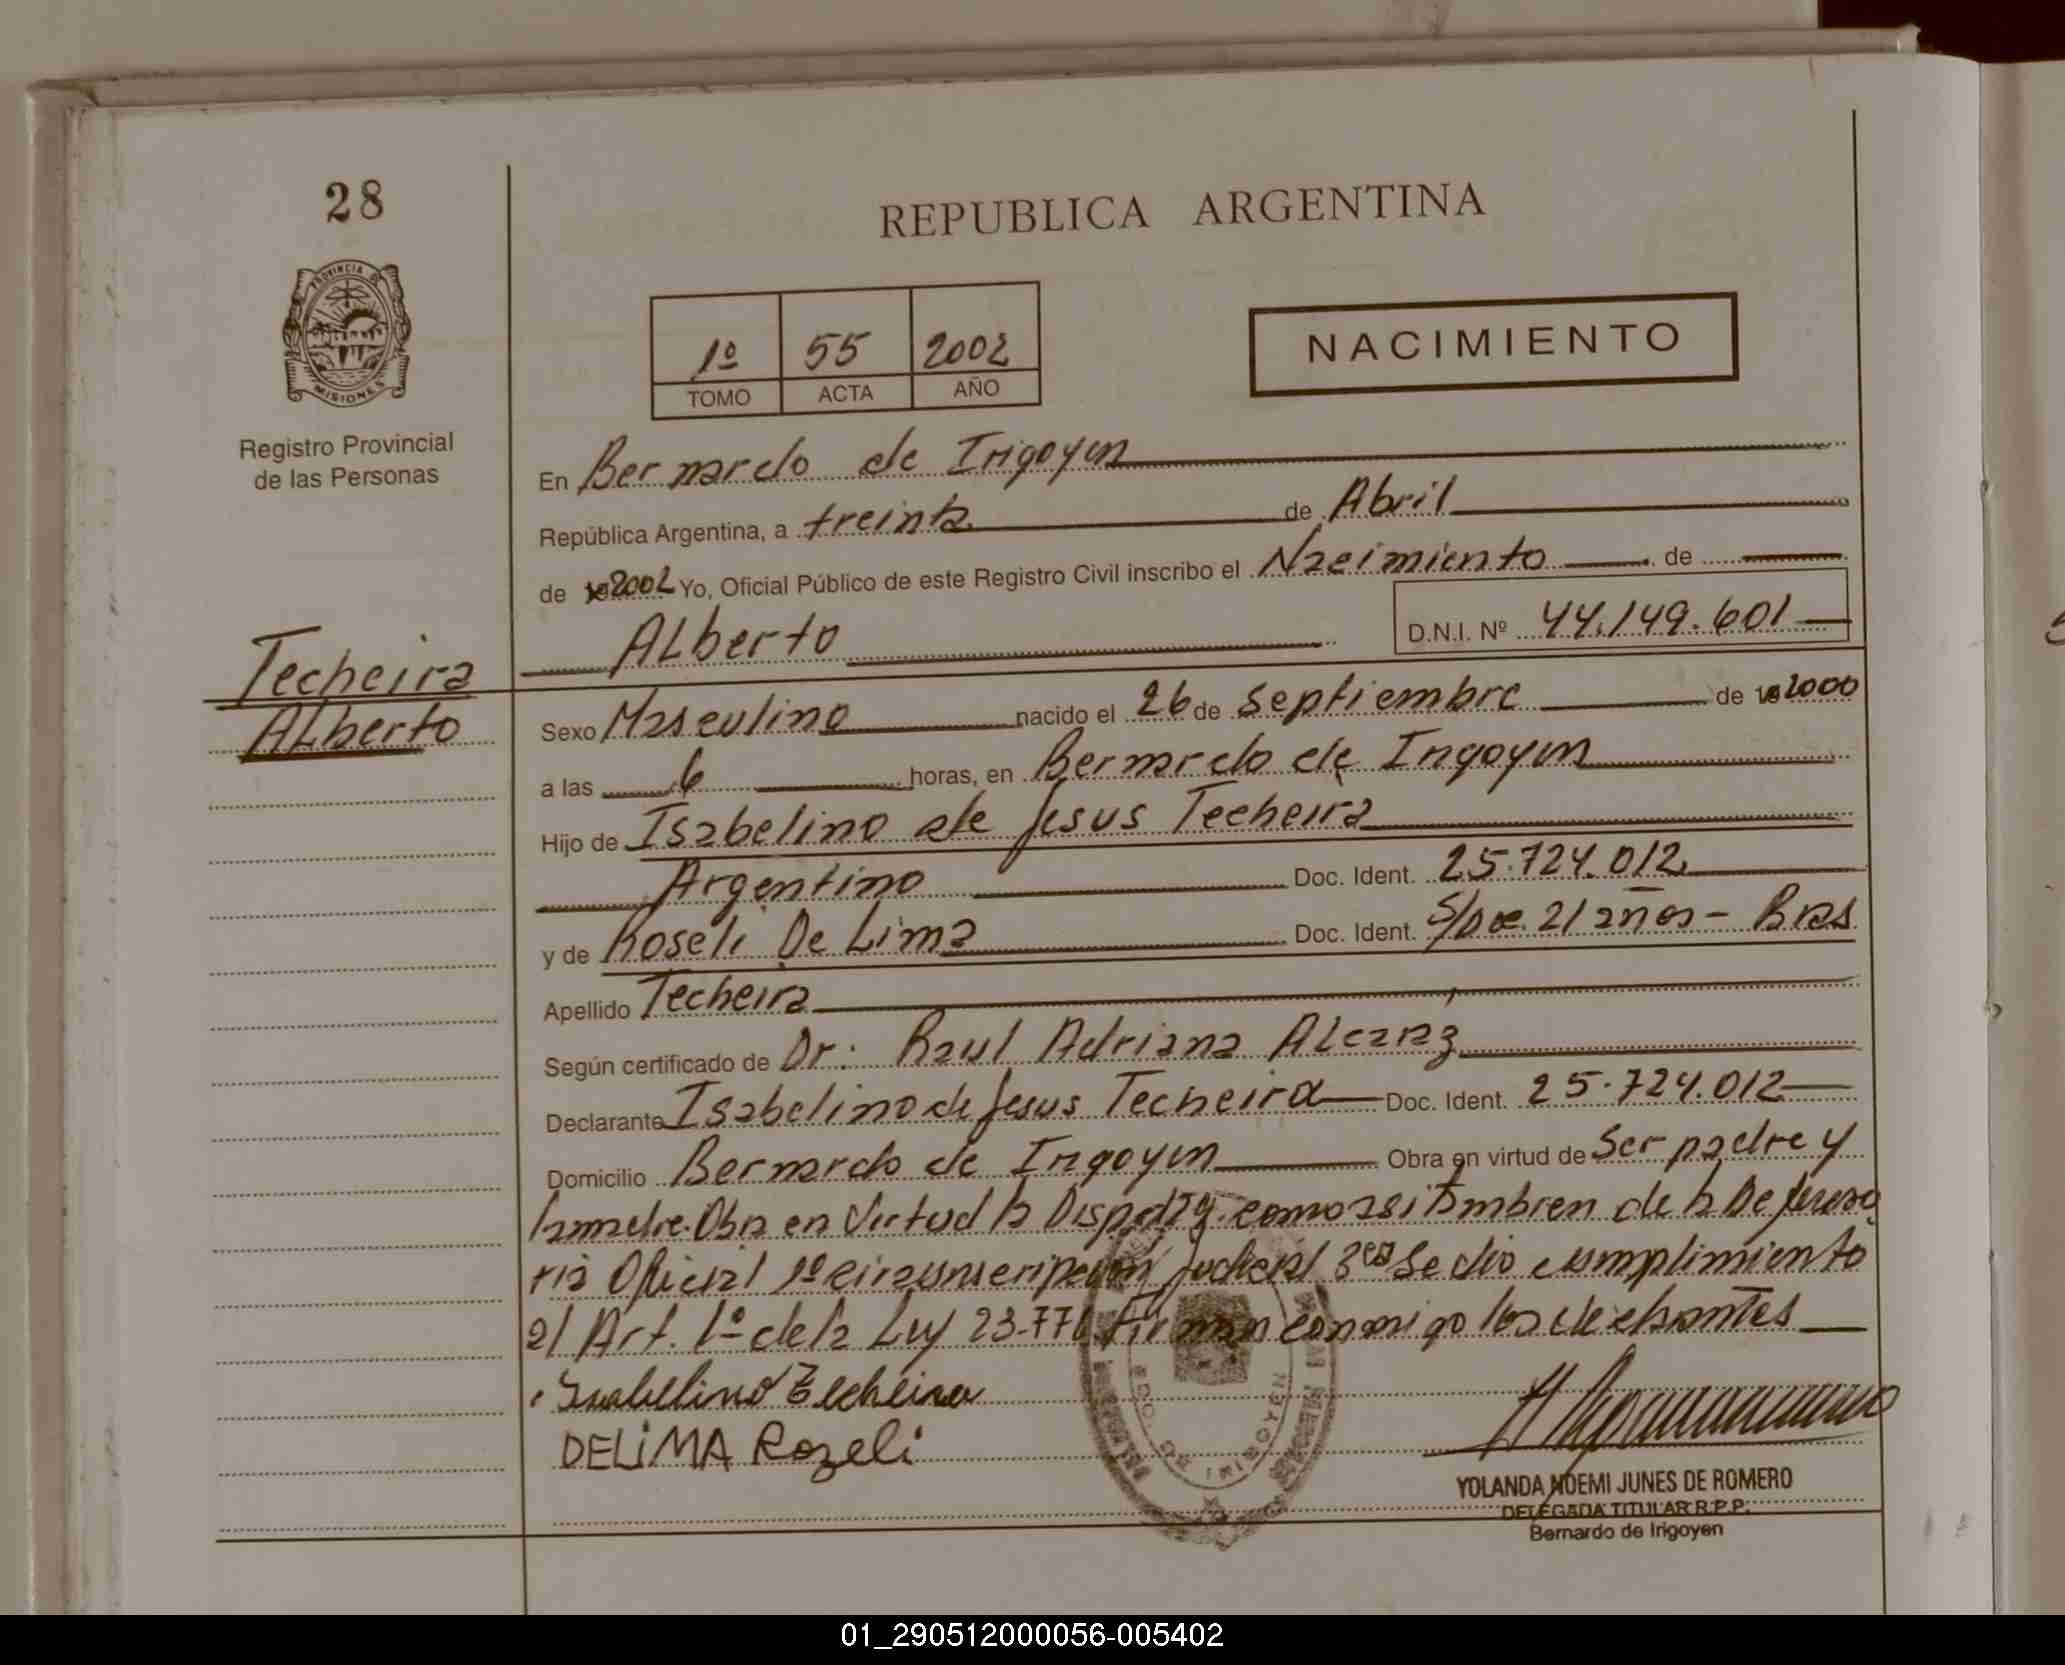 28
REPUBLICA ARGENTINA
PROVINCIA DE
MISIONES
Registro Provincial
de las Personas
1º 55 2002
TOMO ACTA AÑO
NACIMIENTO
En Bernardo de Irigoyen
República Argentina, a treinta de Abril
de 2002 Yo, Oficial Público de este Registro Civil inscribo el Nacimiento de
Alberto D.N.I. Nº 44.149.601
Techeira
Alberto
Sexo Masculino nacido el 26 de Septiembre de 2000
a las 6 horas, en Bernardo de Irigoyen
Hijo de Isabelino de Jesus Techeira
Argentino Doc. Ident. 25.724.012
y de Roseli De Lima Doc. Ident. S/Doc. 21 años - Bras
Apellido Techeira
Según certificado de Dr: Raul Adriana Alcaraz
Declarante Isabelino de Jesus Techeira Doc. Ident. 25.724.012
Domicilio Bernardo de Irigoyen Obra en virtud de Ser padre y
la madre. Obra en Virtud la como asi tambien de la Defenso
ria Oficial 1º circunscripción Judicial Se dio cumplimiento
al Art. 1º de la Ley 23.776. Firman conmigo los declarantes
Isabelino Techeira
DELIMA Rozeli
YOLANDA NOEMI JUNES DE ROMERO
DELEGADA TITULAR R.P.P.
Bernardo de Irigoyen
01_290512000056-005402